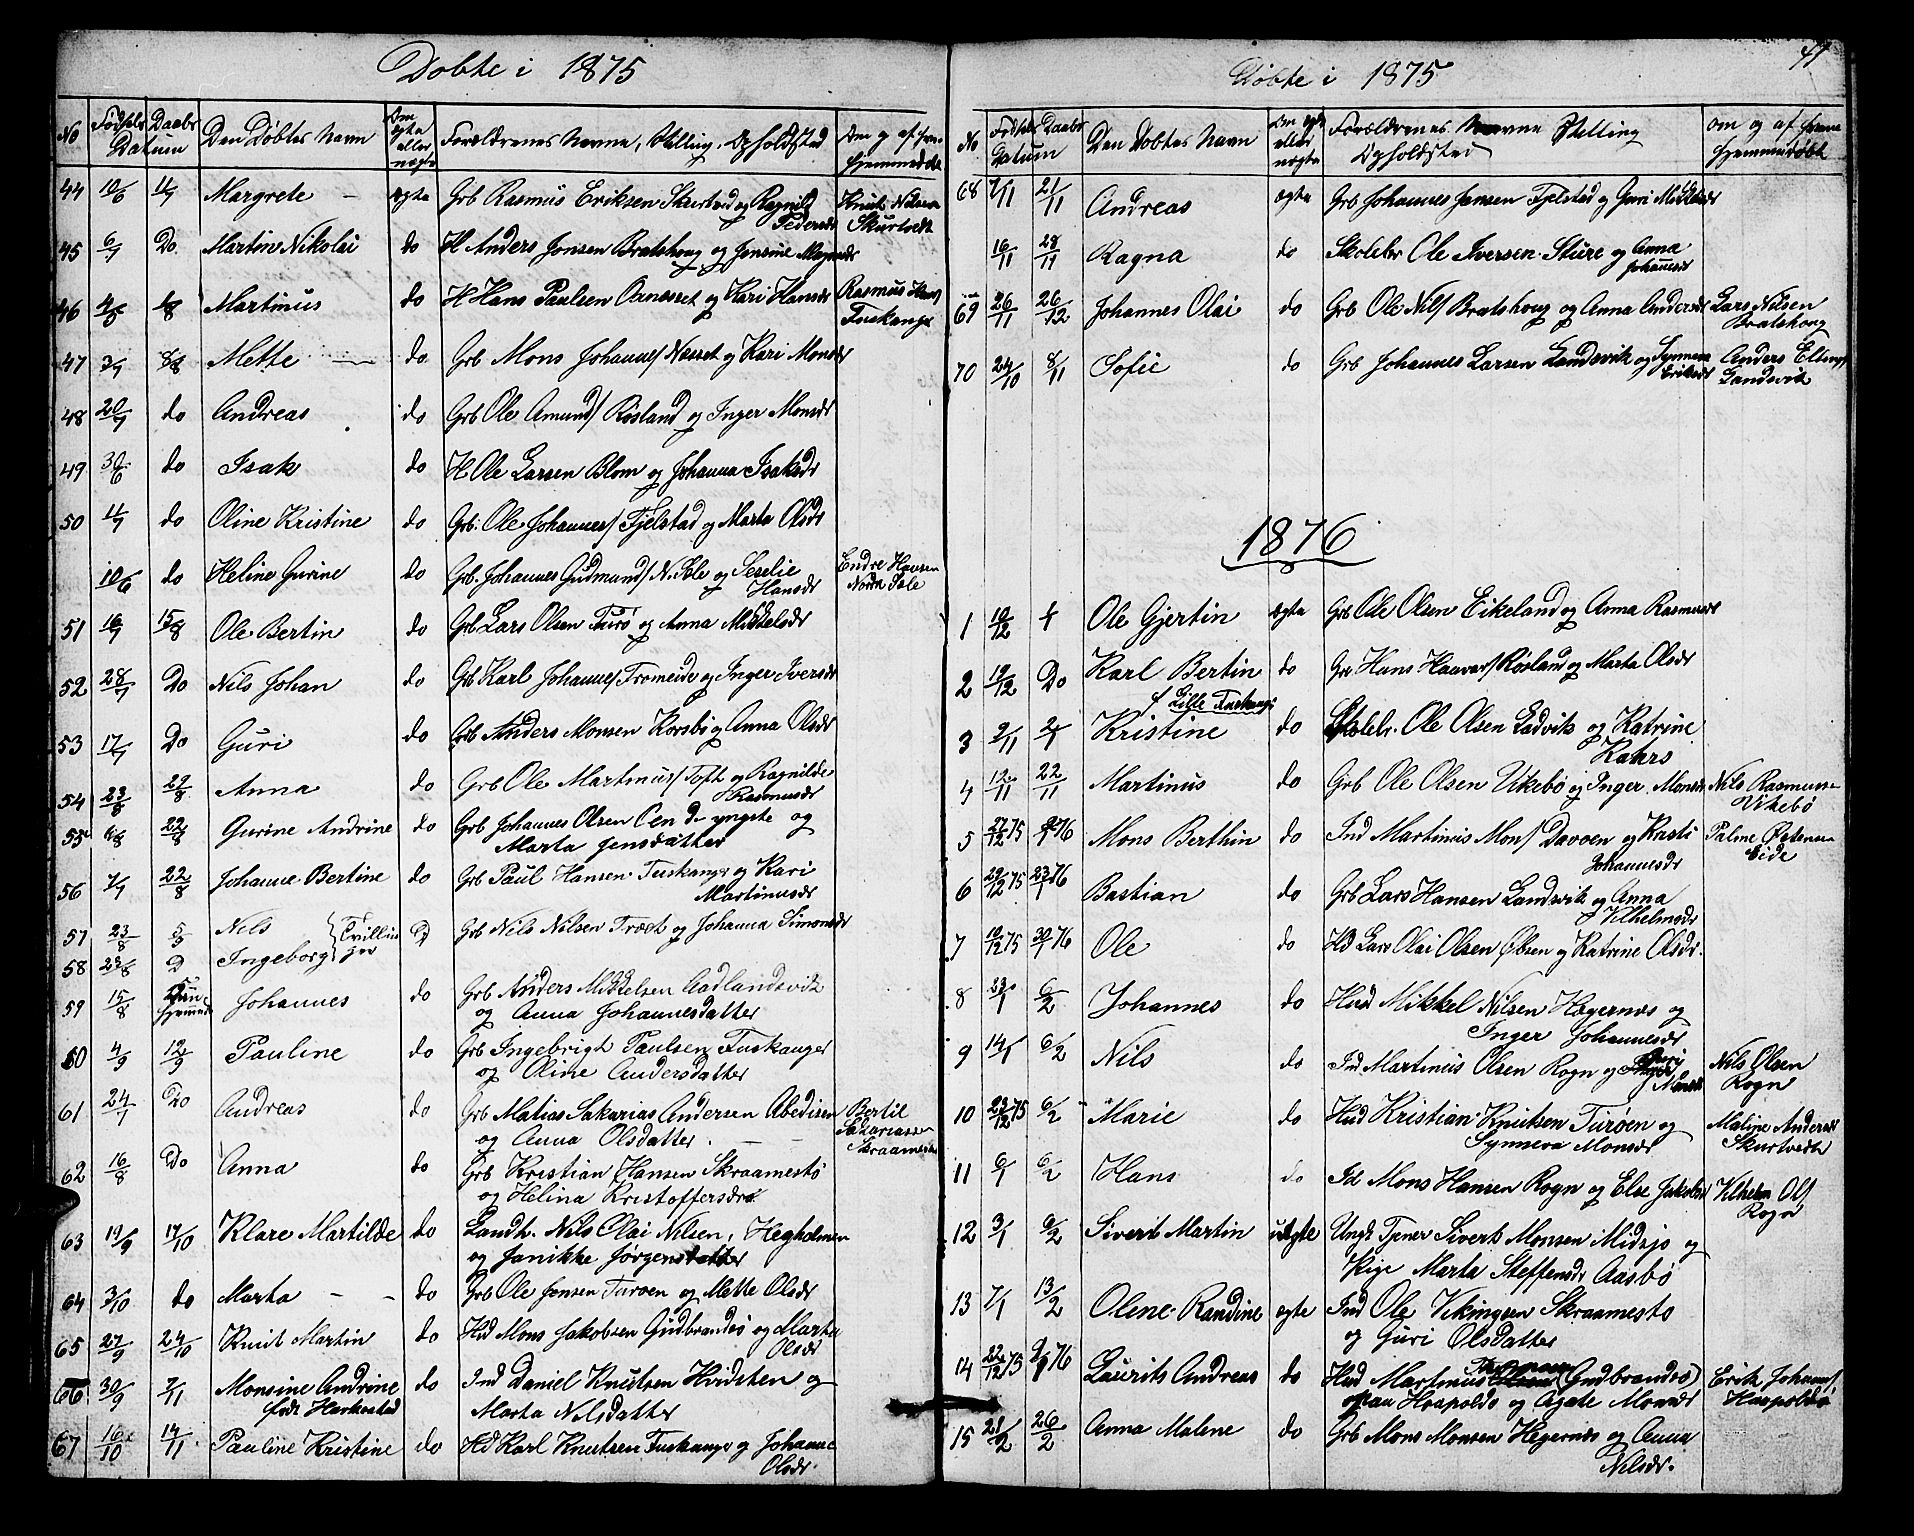 Døbte i 1875
No Fødsels Daabs Datum Den Døbtes Navn Om ægte eller uægte Forældrenes Navne, Stilling, Opholdsted Om og af hvem hjemmedøbt
44 10/6 11/7 Margrete — ægte Grb Rasmus Eriksen Skurtved og Ragnild Pedersdr Knut Nilsen Skurtvedt
45 6/7 Do Martin Nikolai do H Anders Jonsen Bratshoug og Jensine Magnesdr
46 4/5 1/8 Martinus do H Hans Paulsen Ornæsset og Kari Hansdr Rasmus Hans/ Tuskanger
47 3/7 8/8 Mette — do Grb Mons Johannes/ Næsset og Kari Monsdr
48 20/7 do Andreas do Grb Ole Amund/ Røsland og Inger Monsdr
49 30/6 do Isak do H Ole Larsen Blom og Johanna Isaksdr
50 11/7 do Oline Kristine do Grb. Ole Johannes/ Fjelstad og Marta Olsdr
10/6 do Heline Gurine do Grb. Johannes Gudmund/ N. Sele og Seselie Hansdr Endre Hansen Nordre Sele
51 16/7 15/8 Ole Bertin do Grb Lars Olsen Turø og Anna Mikkelsdr
52 28/7 Do Nils Johan do Grb Karl Johannes/ Tromeide og Inger Iversdr
53 17/7 Do Guri do Grb Anders Monsen Korsbø og Anna Olsdr
54 23/8 29/8 Anna do Grb Ole Martinus/ Toft og Ragnilde Rasmusdr
55 6/8 22/8 Gurine Andrine do Grb Johannes Olsen Oen de yngste og Marta Jensdatter
56 7/7 22/8 Johanne Bertine do Grb Paul Hansen Tuskanger og Kari Martinusdr
57 23/8 5/9 Nils } Tvillinger D Grb Nils Nilsen Træet og Johanna Simonsdr
58 23/8 D Ingeborg
59 15/8 Johannes do Grb Anders Mikkelsen Aadlandsvik
og Anna Johannesdatter
60 4/9 12/9 Pauline do Grb Ingebrigt Paulsen Tuskanger
og Oline Andersdatter
61 24/7 Do Andreas do Grb Matias Sakarias Andersen Abedisen Bertil Sakariassen Skraamestø
og Anna Olsdatter. —
62 16/8 Do Anna do Grb Kristian Hansen Skraamestø
og Helina Kristoffersdr
63 19/9 17/10 Klare Martilde do Landh. Nils Olai Nilsen, Hegholmen
og Janikke Jørgensdatter
64 3/10 do Marta — — do Grb Ole Jensen Turøen og Mette Olsdr
65 27/9 24/10 Knut Martin do Hd Mons Jakobsen Gudbrandsø og Marta Olsdr
66 30/9 7/11 Monsine Andrine do Ind Daniel Knutsen Hvidsten og
født Harkestad Marta Nilsdatter
67 16/10 14/11 Pauline Kristine do Hd Karl Knutsen Tuskanger og Johanne Olsdr
41
Døbte i 1875
No Fødsels Daabs Datum Den Døbtes Navn Om ægte eller uægte Forældrenes Navne Stilling Opholdsted om og af hvem hjemmedøbt
68 7/11 21/11 Andreas ægte Grb Johannes Jensen Fjelstad og Guri Mikkelsdr
16/11 28/11 Ragna do Skolelr Ole Iversen Sture og Anna Johannesdr
69 26/11 26/12 Johannes Olai do Grb Ole Nils/ Bratshoug og Anna Andersdr Lars Nilsen Bratshoug
70 24/10 8/11 Sofie do Grb Johannes Larsen Landsvik og Synneva Eriksdr Anders Ellings/ Landsvik
1876
1 10/12 1/1 Ole Gjertin ægte Grb Ole Olsen Eikeland og Anna Rasmusdr
2 19/12 Do Karl Bertin do Gr Hans Haavar/ Røsland og Marta Olsdr
f Lille Tuskanger
3 9/11 2/1 Kristine do Skolelr. Ole Olsen Ladvik og Katrine Rahrs
4 12/11 22/11 Martinus do Grb Ole Olsen Vikebø og Inger Monsdr Nils Rasmussen Vikebø
5 27/12 75 9/1 76 Mons Berthin do Ind Martinus Mons/ Davøen og Kristi Johannesdr Palme Østensen Eide
6 29/12 75 23/1 76 Bastian do Grb Lars Hansen Landsvik og Anna Vilhelmsdr
7 10/12 75 30/1 76 Ole do Hd Lars Olai Olsen Øbsen og Katrine Olsdr.
8 23/1 6/2 Johannes do Hud Mikkel Nilsen Hægernæs og
Inger Johannesdr
9 14/1 6/2 Nils do Ind Martinus Olsen Rogn og Guri Monsdr Nils Olsen Rogn
10 23/12 75 6/2 Marie do Hud Kristian Knutsen Turøen og
Synneva Monsdr Maline Andersdr Skurtvedt
11 6/1 6/2 Hans do Id Mons Hansen Rogn og Else Jakobsdr Vilhelm Ols/ Rogn
12 3/1 6/2 Sivert Martin uægte Ungk Tjener Sivert Monsen Midsjø og
Pige Marta Steffensdr Aasbø
13 7/1 13/2 Olene Randine ægte Ind Ole Vikingsen Skraamestø
og Guri Olsdatter
14 22/12 75 9/1 76 Laurits Andreas do Hud Martinus (Gudbrandsø)
Haapoldø og Agate Monsdr Erik Johannes/ Haapoldø
15 21/2 26/2 Anna Malene do Grb Mons Monsen Hegernæs og Anna Nilsdr.